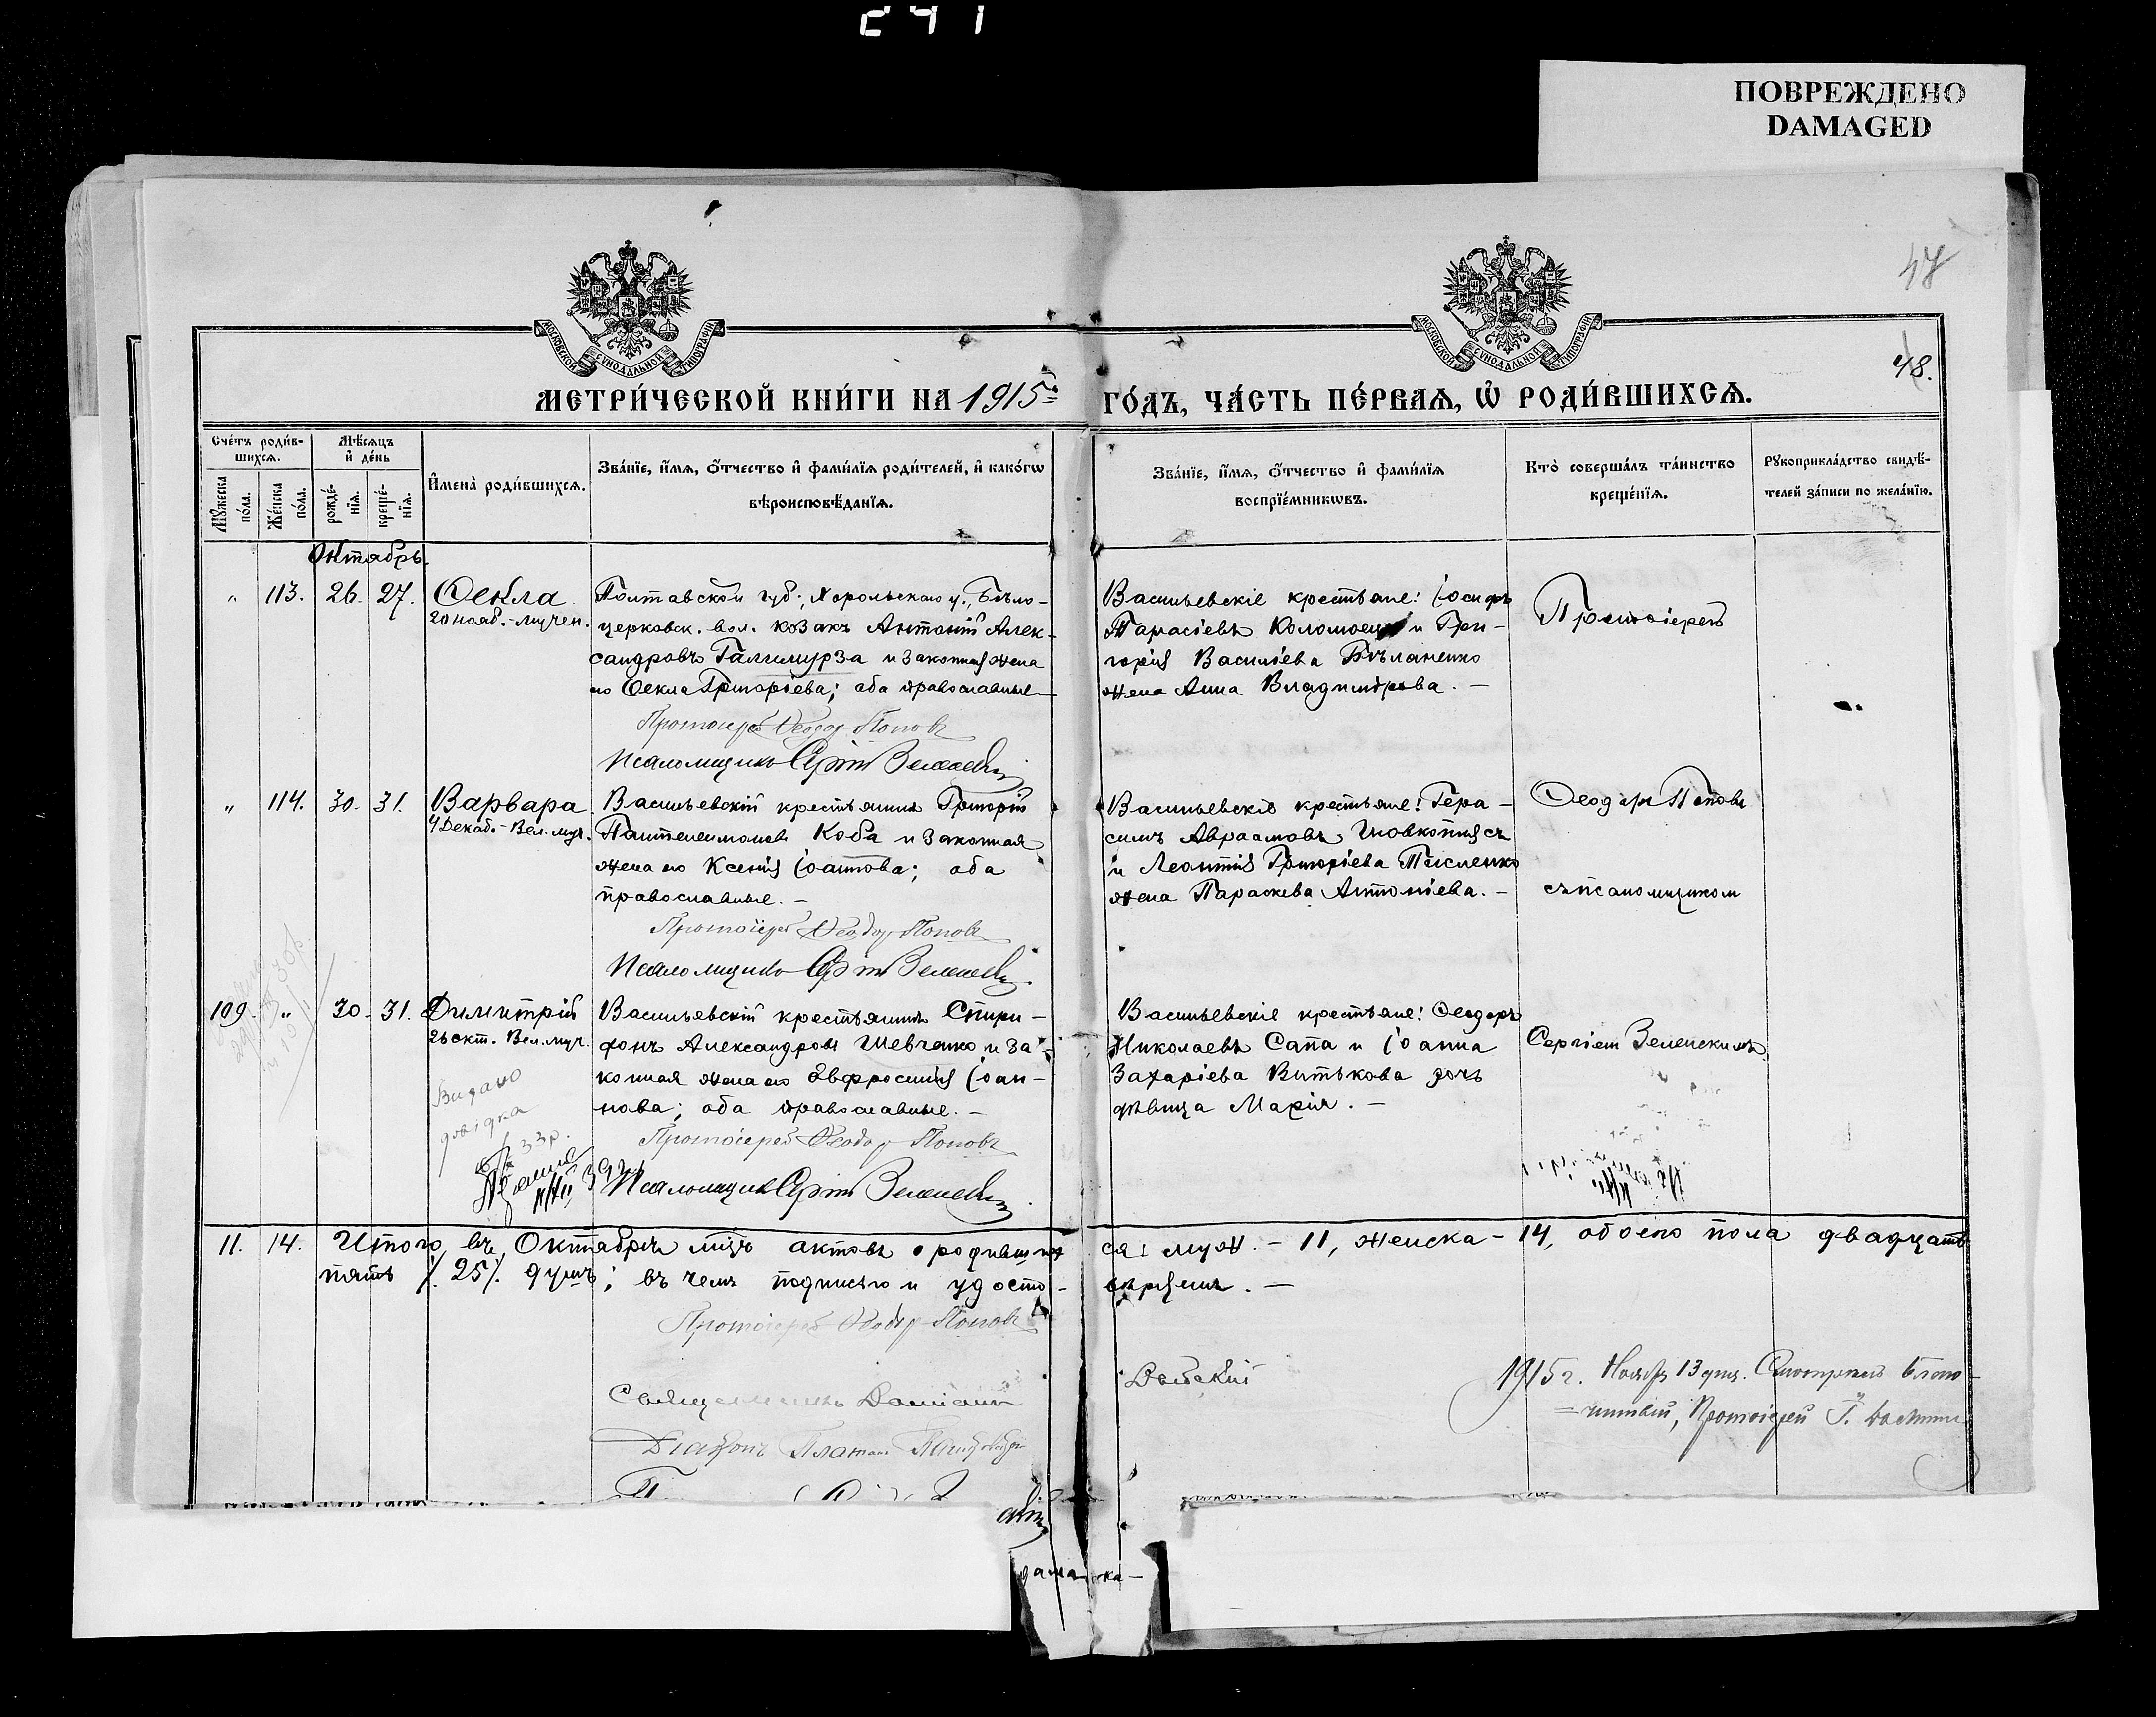 241
ПОВРЕЖДЕНО
DAMAGED
48.
МОСКОВСКОЙ СУНОДАЛЬНОЙ ТИПОГРАФІИ
МОСКОВСКОЙ СУНОДАЛЬНОЙ ТИПОГРАФІИ
МЕТРИ́ЧЕСКОЙ КНИ́ГИ НА 1915й ГО́ДЪ, ЧА́СТЬ ПЕ́РВАѦ, Ѡ҆ РОДИ́ВШИХСѦ.
Сче́тъ роди́в-
шихсѧ.
Мѣ́сѧцъ
и҆ де́нь
Мꙋ́жеска по́ла.
Же́нска по́ла.
рожде́-
нїѧ.
креще́-
нїѧ.
И҆мена̀ роди́вшихсѧ.
Зва́нїе, и҆́мѧ, ѻ҆́тчество и҆ фами́лїѧ роди́телей, и҆ како́гѡ
вѣроисповѣ́данїѧ.
Зва́нїе, и҆́мѧ, ѻ҆́тчество и҆ фами́лїѧ
воспрїе́мникѡвъ.
Кто̀ соверша́лъ та́инство
креще́нїѧ.
Рꙋкоприкла́дство свидѣ́-
телей за́писи по жела́нїю.
Октябрь.
„ 113. 26. 27. Ѳекла
20 нояб.-мучен.
Полтавской губ., Хорольскаго у., Бѣло-
церковск. вол. козакъ Антоній Алек-
сандровъ Галимурза и законная жена
его Ѳекла Григоріева; оба православные
Протоіерей Ѳеодор Поповъ
Псаломщикъ Сергій Зеленскій
Васильевскіе крестьяне: Іосифъ
Тарасіевъ Коломоецъ и Гри-
горія Василіева Бѣланенко
жена Анна Владимірова. —
Протоіерей
„ 114. 30. 31. Варвара
4 Декаб.- Вел. муч.
Васильевскій крестьянинъ Григорій
Пантелеимоновъ Коба и законная
жена его Ксенія Іоаннова; оба
православные. —
Протоіерей Ѳеодор Поповъ
Псаломщикъ Сергій Зеленскій
Васильевскіе крестьяне: Гера-
симъ Авраамовъ Шовкоплясъ
и Леонтія Григоріева Тесленко
жена Параскева Антоніева. —
Ѳеодоръ Поповъ
съ псаломщикомъ
109. „ 30. 31. Димитрій
26 окт. Вел. муч.
Васильевскій крестьянинъ Спири-
донъ Александровъ Шевченко и за-
конная жена его Евфросинія Іоан-
нова; оба православные. —
Протоіерей Ѳеодор Поповъ
Псаломщикъ Сергій Зеленскій
Васильевскіе крестьяне: Ѳеодоръ
Николаевъ Сапа и Іоанна
Захаріева Витькова дочь
дѣвица Марія. —
Сергіемъ Зеленскимъ
Видано
довідка
33р.
11. 14. Итого въ Октябрѣ м-цѣ актовъ о родившихся: муж. - 11, женска - 14, обоего пола двадцать
пять /. 25/. душъ; въ чемъ подписью и удосто-
вѣряемъ. —
Протоіерей Ѳеодор Поповъ
Священникъ
Діаконъ Платонъ
1915 г. Ноября 13 дня. Смотрѣлъ Благо-
чинный, Протоіерей